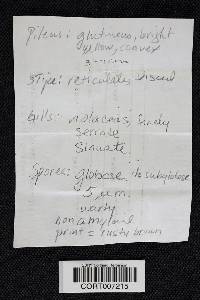 Pileus: glutinous, bright
yellow, convex
Stipe: reticulate, viscid
Gills: violaceous, finely
serrate
Sinuate
Spores: globose to subglobose
5 µm
warty
nonamyloid
print = rusty brown
CORT007215